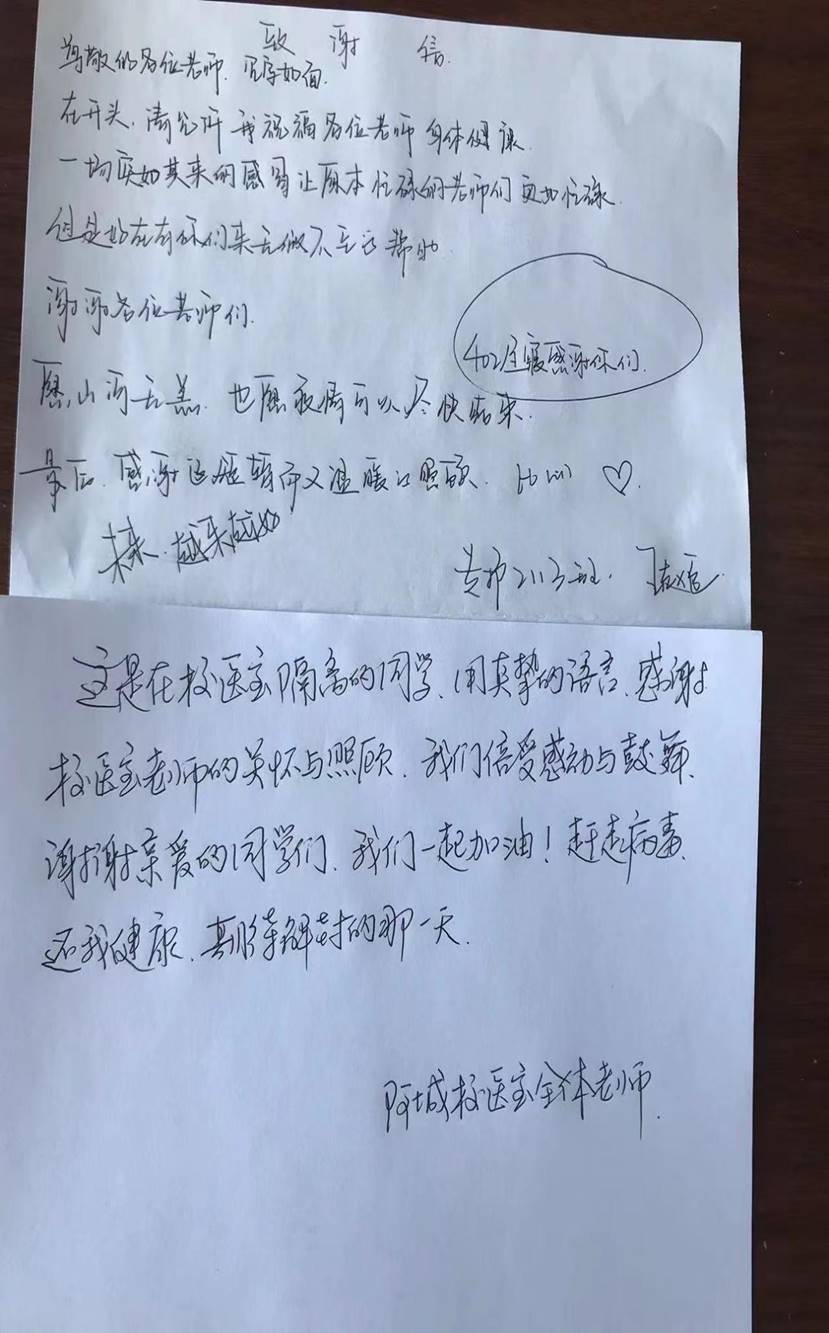 致谢信.
尊敬的各位老师.见字如面.
在开头,请允许我祝福各位老师身体健康.
一场突如其来的感冒让原本忙碌的老师们更加忙碌.
但是好在有你们来无微不至的帮助.
谢谢各位老师们.
402全寝感谢你们.
愿山河无恙.也愿疫情可以尽快结束.
最后.感谢这短暂而又温暖的照顾. ♡.
未来.越来越好
2113班.
这是在校医室隔离的同学,用真挚的语言,感谢
校医室老师的关怀与照顾.我们倍受感动与鼓舞.
谢谢亲爱的同学们.我们一起加油!赶走病毒.
还我健康.期待解封的那一天.
阿城校医室全体老师.